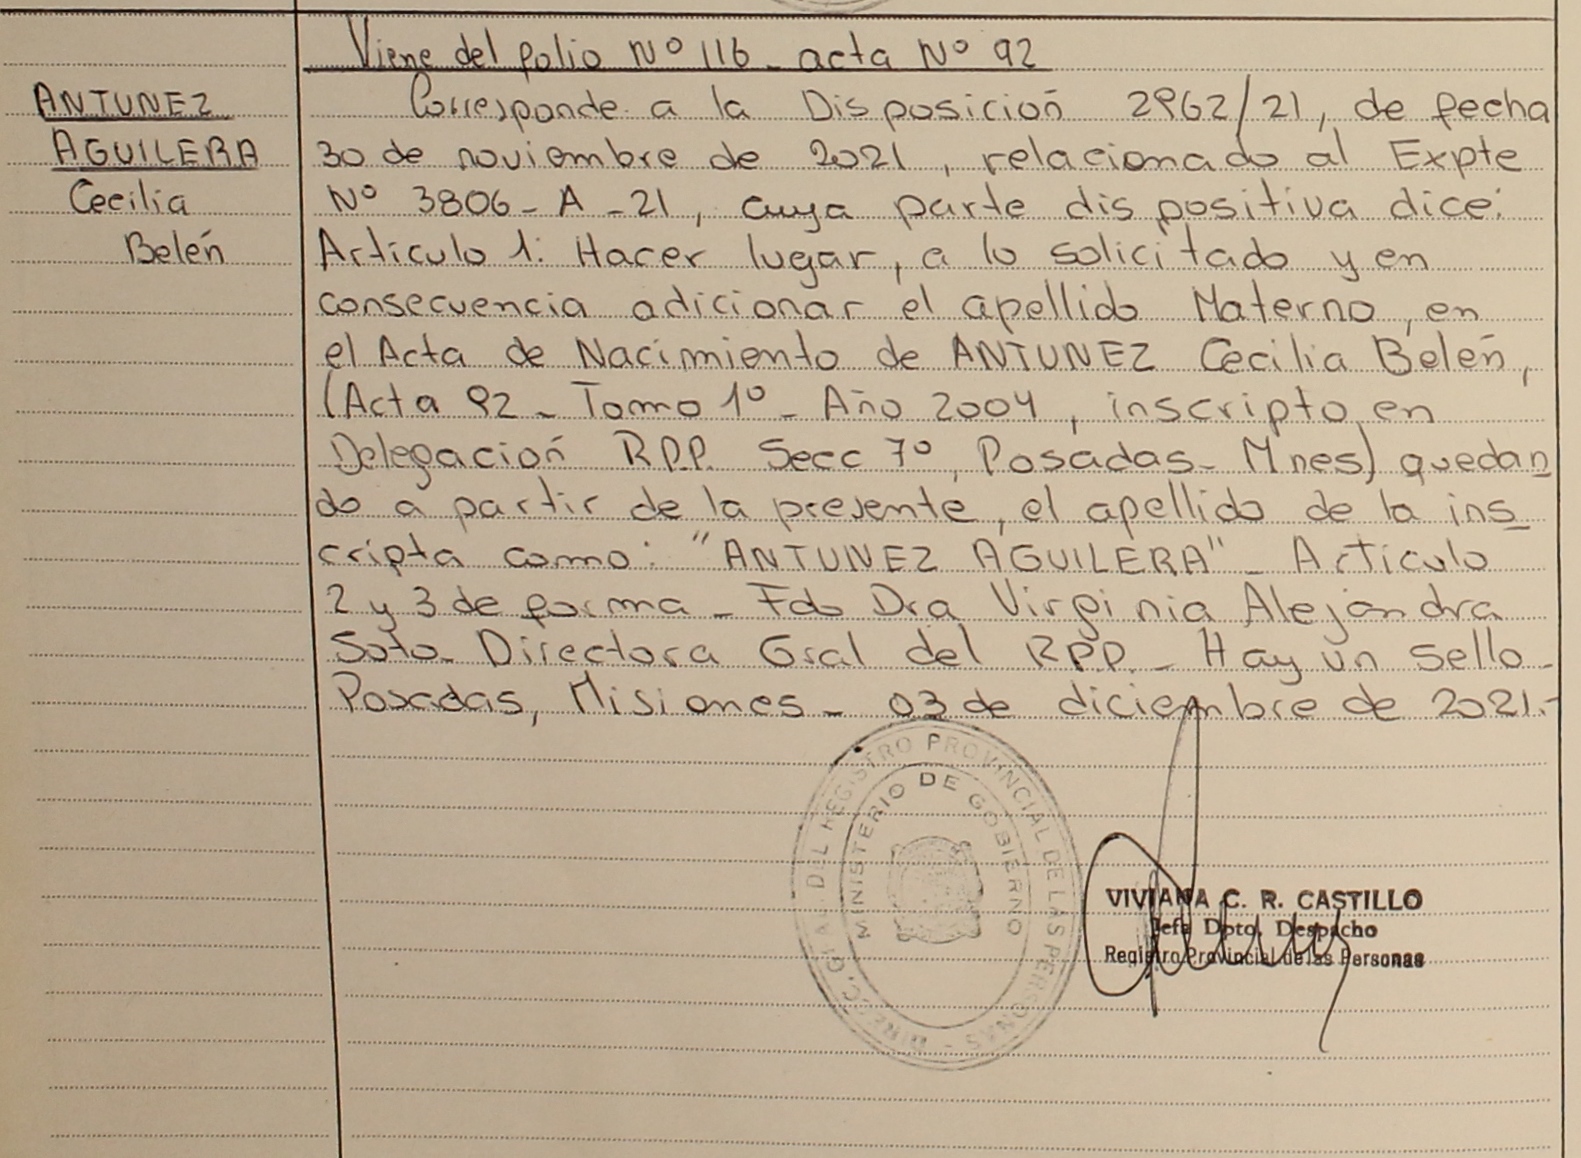 Viene del folio Nº 116 - acta Nº 92
ANTUNEZ
AGUILERA
Cecilia
Belén
Corresponde a la Disposición 2962/21, de fecha
30 de noviembre de 2021, relacionado al Expte
Nº 3806 - A - 21, cuya parte dispositiva dice:
Artículo 1: Hacer lugar, a lo solicitado y en
consecuencia adicionar el apellido Materno, en
el Acta de Nacimiento de ANTUNEZ Cecilia Belén,
(Acta 92 - Tomo 1º - Año 2004, inscripto en
Delegación R.P.P. Secc 7º, Posadas - Mnes) quedan
do a partir de la presente, el apellido de la ins
cripta como: "ANTUNEZ AGUILERA" - Artículo
2 y 3 de forma - Fdo Dra Virginia Alejandra
Soto - Directora Gral del RPP. - Hay un sello -
Posadas, Misiones - 03 de diciembre de 2021.-
DIRECC. GRAL. DEL REGISTRO PROVINCIAL DE LAS PERSONAS -
MINISTERIO DE GOBIERNO
VIVIANA C. R. CASTILLO
Jefa Dpto. Despacho
Registro Provincial de las Personas